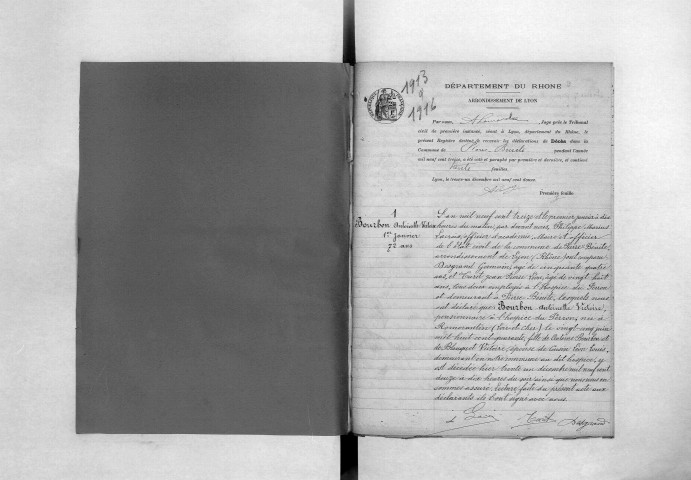 1913
à
1916
DÉPARTEMENT DU RHONE
ARRONDISSEMENT DE LYON
Par nous, Juge près le Tribunal
civil de première instance, séant à Lyon, département du Rhône, le
présent Registre destiné à recevoir les déclarations de Décès dans la
Commune de Pierre-Bénite pendant l'année
mil neuf cent treize, a été coté et paraphé par première et dernière, et contient
feuilles.
Lyon, le trente-un décembre mil neuf cent douze.
Première feuille
1
Bourbon Antoinette Victoire
1er Janvier
72 ans
L'an mil neuf cent treize et le premier janvier à dix
heures du matin, par devant nous Philippe Marius
officier d'académie, Maire et officier
de l'État civil de la commune de Pierre-Bénite,
arrondissement de Lyon (Rhône) ont comparu
Dasgrand âgé de cinquante quatre
ans, et Carol Jean Pierre âgé de vingt huit
ans, tous deux employés à l'hospice du Perron
et demeurant à Pierre-Bénite, lesquels nous
ont déclaré que Bourbon Antoinette Victoire,
pensionnaire à l'hospice du Perron, née à
Romorantin (Loir et Cher) le vingt cinq juin
mil huit cent quarante, fille de Antoine Bourbon et
de Victoire, épouse de Léon Louis,
demeurant en notre commune au dit hospice, y
est décédée hier trente un décembre mil neuf cent
douze à dix heures du soir ainsi que nous nous en
sommes assuré. Lecture faite du présent acte aux
déclarants ils l'ont signé avec nous.
Dasgrand